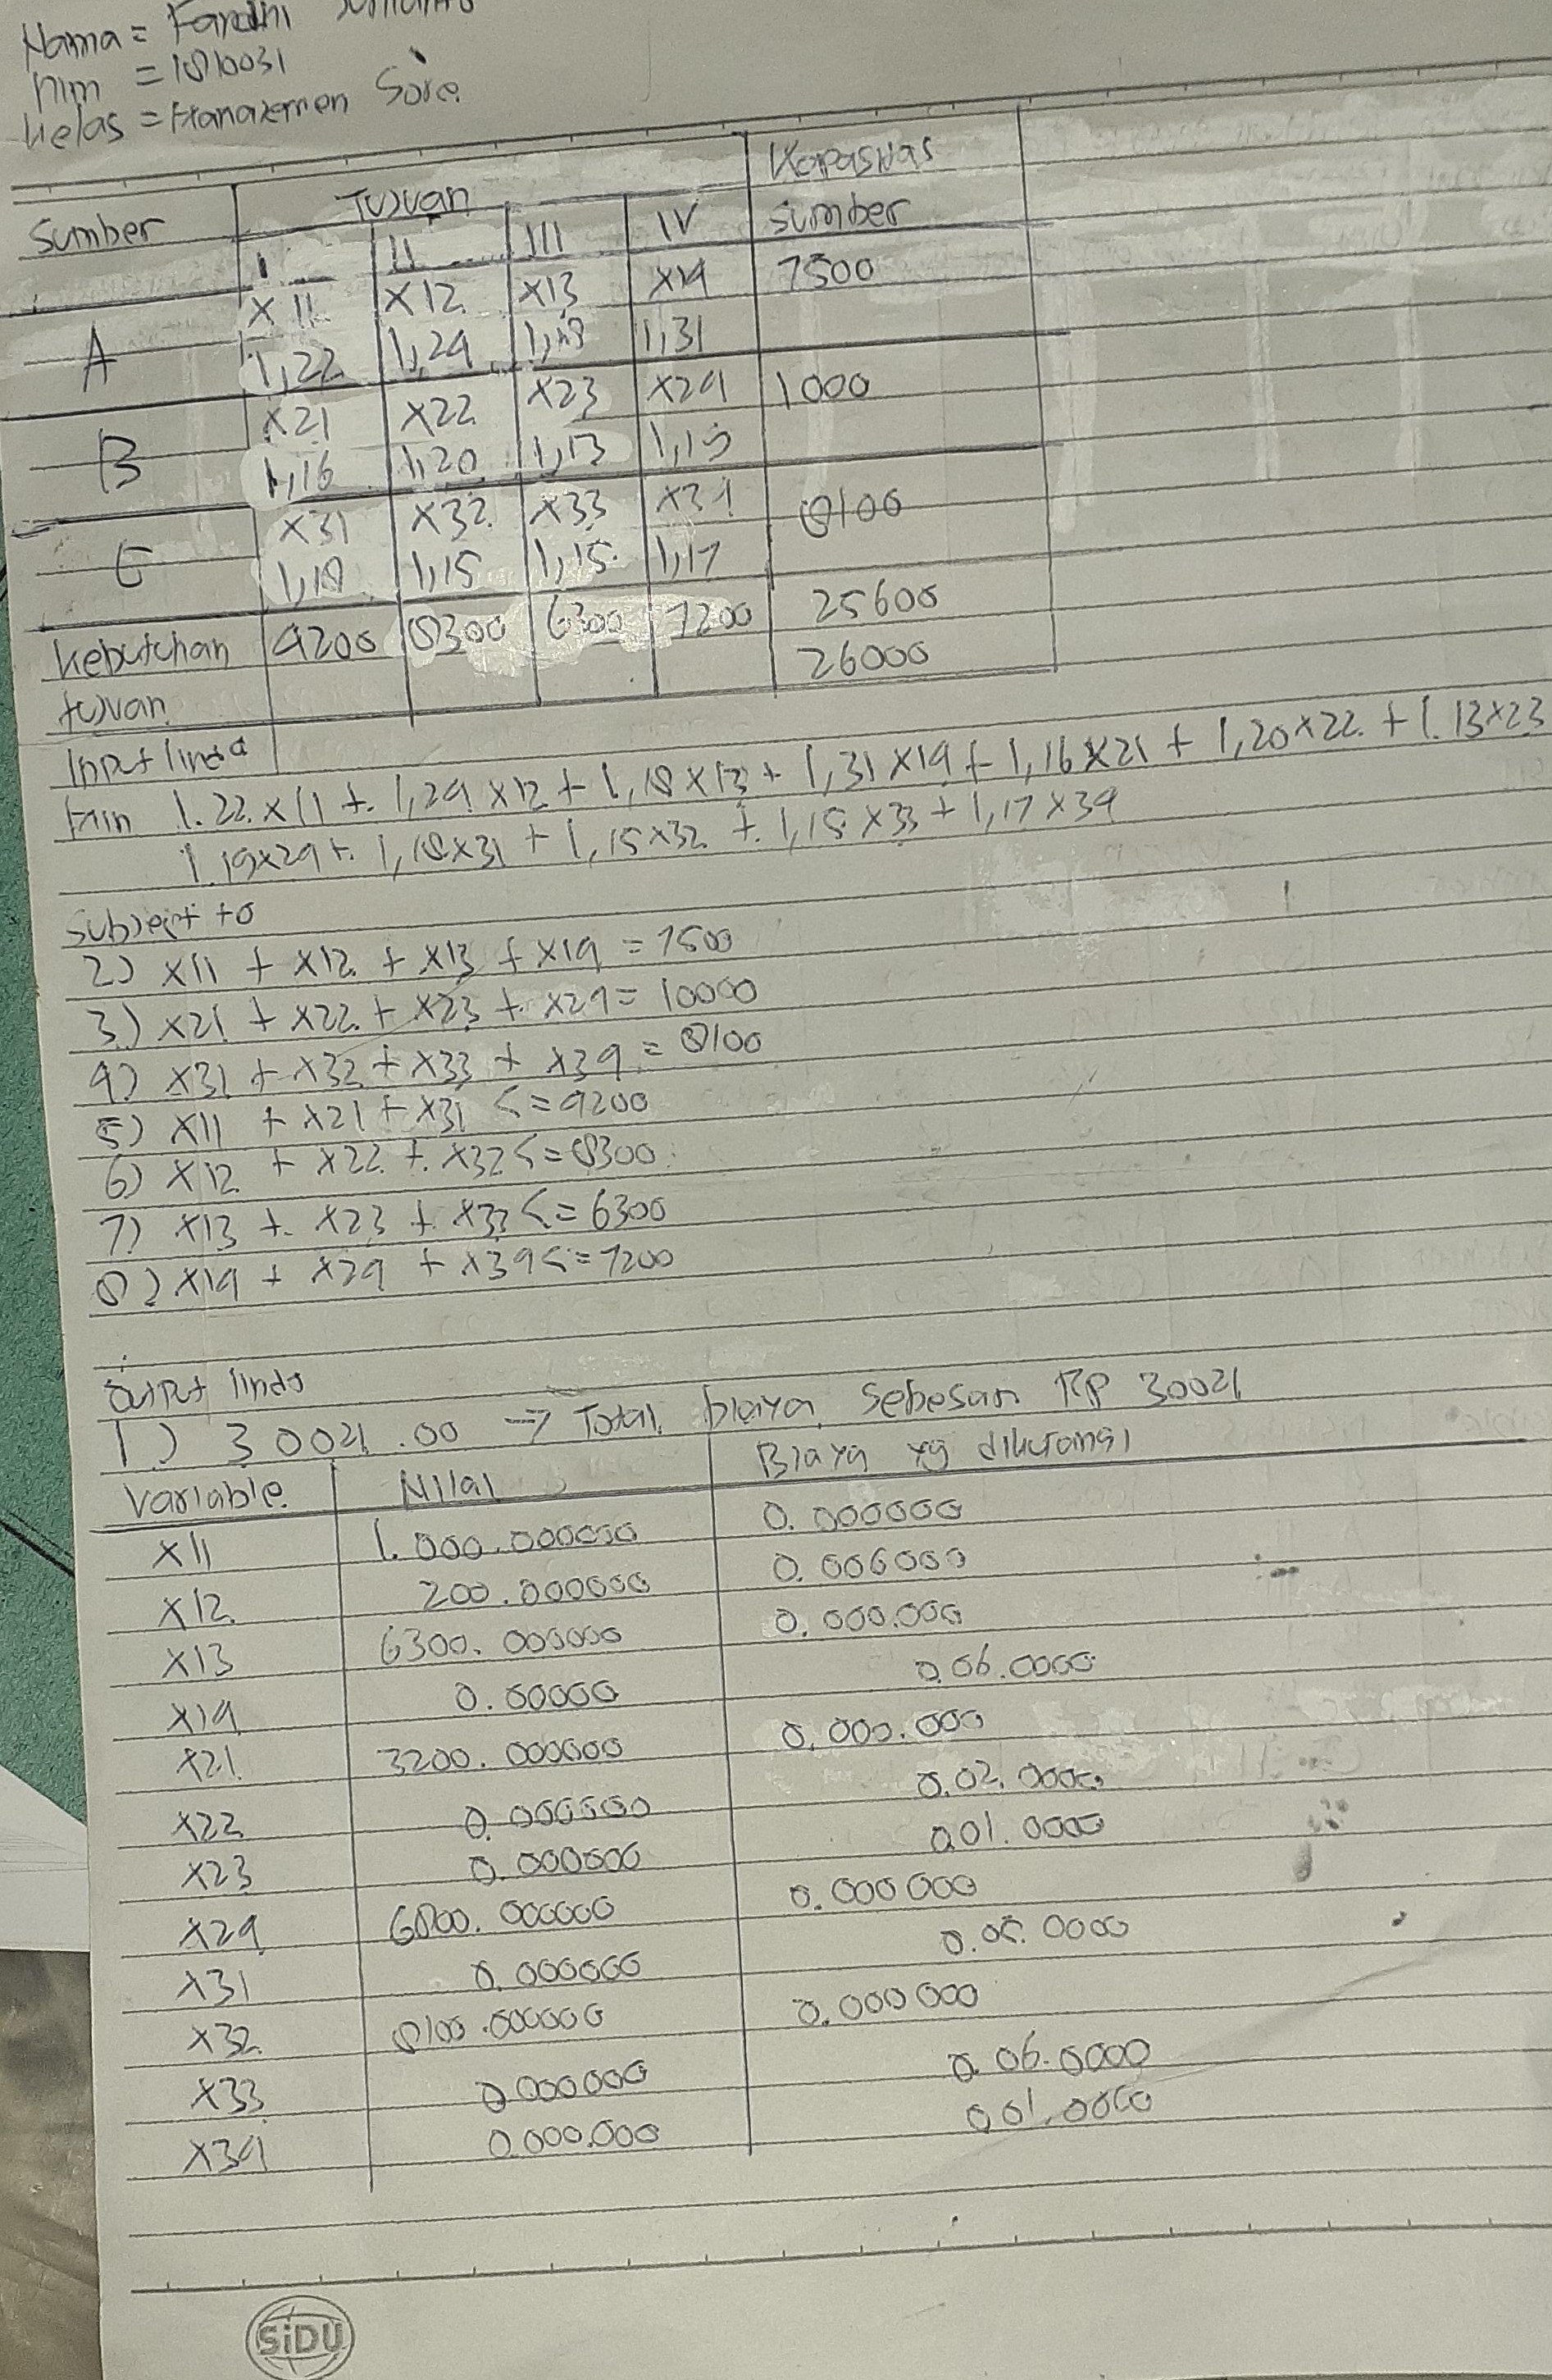 Nama = Fandhi
Nim = 1810031
Kelas = Manajemen Sore
Sumber Tujuan Kapasitas
sumber
I II III IV
A X11 X12 X13 X14 7500
1,22 1,24 1,18 1,31
B X21 X22 X23 X24 1000
1,16 1,20 1,13 1,19
C X31 X32 X33 X34 8100
1,18 1,15 1,15 1,17
Kebutuhan 4200 8300 6300 7200 25600
tujuan 26000
Input lindo
Min 1.22 x11 + 1,24 x12 + 1,18 x13 + 1,31 x14 + 1,16 x21 + 1,20 x22 + 1.13 x23
1.19x24 + 1,18x31 + 1,15x32 + 1,15 x33 + 1,17 x34
Subject to
2) x11 + x12 + x13 + x14 = 7500
3) x21 + x22 + x23 + x24 = 10000
4) x31 + x32 + x33 + x34 = 8100
5) x11 + x21 + x31 <= 4200
6) x12 + x22 + x32 <= 8300
7) x13 + x23 + x33 <= 6300
8) x14 + x24 + x34 <= 7200
Output lindo
1) 30021.00 → Total biaya sebesar RP 30021
Variable Nilai Biaya yg dikurangi
X11 1.000.000000 0.000000
X12 200.000000 0.000000
X13 6300.000000 0.000.000
X14 0.00000 0.06.0000
X21 3200.000000 0.000.000
X22 0.000000 0.02.0000
X23 0.000000 0.01.0000
X24 6800.000000 0.000000
X31 0.000000 0.05.0000
X32 8100.000000 0.000000
X33 0.000000 0.06.0000
X34 0.000.000 0.01.0000
SiDU